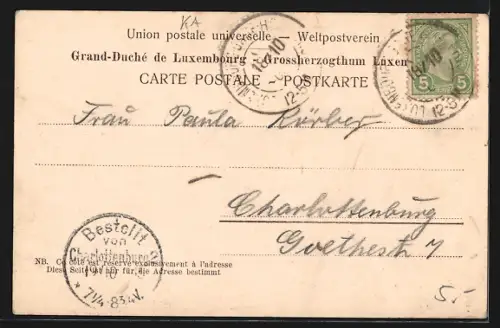 KA
Union postale universelle. — Weltpostverein
Grand-Duché de Luxembourg - Grossherzogthum Luxem
CARTE POSTALE - POSTKARTE
5 5
Frau Paula Körber
Charlottenburg
Goethestr 7
Bestellt
von
Charlottenburg
7¼-8¾V.
NB. Ce côté est réservé exclusivement à l'adresse
Diese Seite ist nur für die Adresse bestimmt
5.-